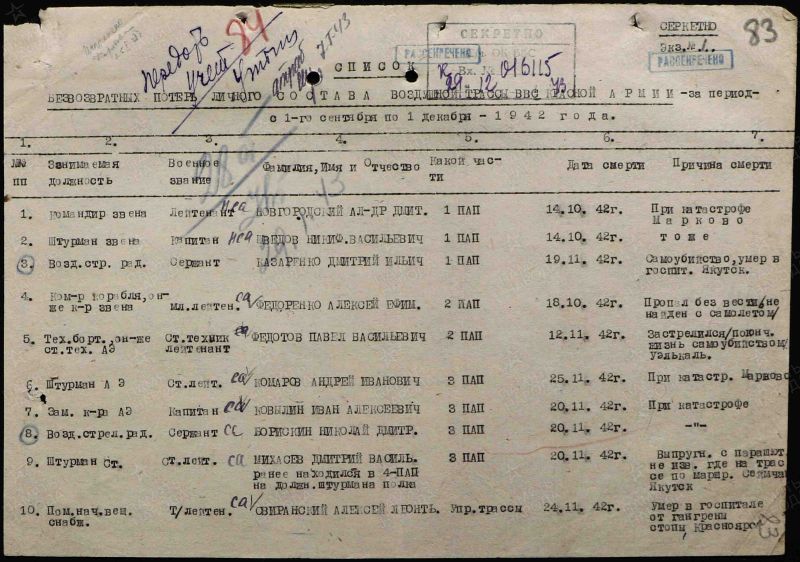 84
83
СЕКРЕТНО
СЕРКЕТНО
Экз.№ 1.
РАССЕКРЕЧЕНО
РАССЕКРЕЧЕНО
Вх.№ 016115
передать
учет
7.I.43
СПИСОК
БЕЗВОЗВРАТНЫХ ПОТЕРЬ ЛИЧНОГО СОСТАВА ВОЗДУШНОЙ ТРАССЫ ВВС КРАСНОЙ АРМИИ -за период-
с 1-го сентября по 1 декабря - 1942 года.
1. 2. 3. 4. 5. 6. 7.
№№ пп Занимаемая должность Военное звание Фамилия,Имя и Отчество Какой час-ти Дата смерти Причина смерти
1. Командир звена Лейтенант НОВГОРОДСКИЙ АЛ-ДР ДМИТ. 1 ПАП 14.10. 42г. При катастрофе
Марково
2. Штурман звена Капитан ШВЕДОВ НИКИФ.ВАСИЛЬЕВИЧ 1 ПАП 14.10. 42г. тоже
3. Возд.стр. рад. Сержант КАЗАРЕНКО ДМИТРИЙ ИЛЬИЧ 1 ПАП 19.11. 42г. Самоубийство,умер в
госпит. Якутск.
4. Ком-р корабля,он-
же к-р звена мл.лейтен. са ФЕДОРЕНКО АЛЕКСЕЙ ЕФИМ. 2 ПАП 18.10. 42г. Пропал без вести/не
найден с самолетом/
5. Тех.борт.,он-же Ст.техник са ФЕДОТОВ ПАВЕЛ ВАСИЛЬЕВИЧ 2 ПАП 12.11. 42г. Застрелился/поконч.
ст.тех. АЭ лейтенант жизнь самоубийством/
Уэлькаль.
6. Штурман А Э Ст.лейт. са КОМАРОВ АНДРЕЙ ИВАНОВИЧ 3 ПАП 25.11. 42г. При катастр. Марково
7. Зам. к-ра АЭ Капитан са КОВЫЛИН ИВАН АЛЕКСЕЕВИЧ 3 ПАП 20.11. 42г. При катастрофе
8. Возд.стрел.рад. Сержант са БОРИСКИН НИКОЛАЙ ДМИТР. 3 ПАП 20.11. 42г. -"-
9. Штурман Ст. Ст.лейт. са МИХАСЕВ ДМИТРИЙ ВАСИЛЬ. 3 ПАП 20.11. 42г. Выпругн. с парашют.
ранее находился в 4-ПАП не изв. где на трас
на должн.штурмана полка се по маршр. Сеймчан
Якутск
10. Пом.нач.вещ. Т/лейтен. са СВИРАНСКИЙ АЛЕКСЕЙ ЛЕОНТЬ. Упр.трассы 24.11. 42г. Умер в госпитале
снабж. от гангрены
стопы, Красноярск